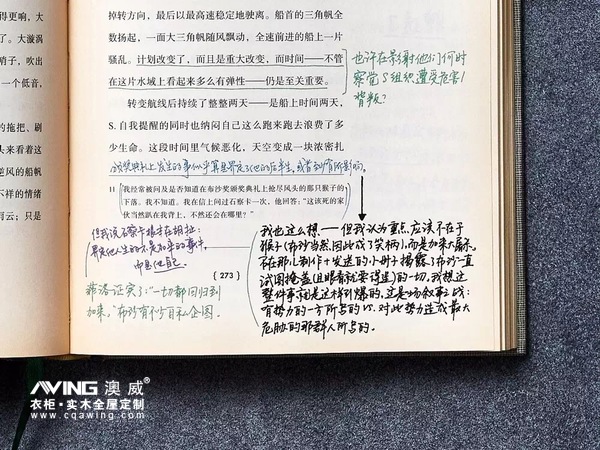 得更响，大
了。大漩涡
哨子，吹出
一个低音，
的拖把、刷
头来看着这
逆风的船帆
不祥的情绪
乌云；只是
掉转方向，最后以最高速稳定地驶离。船首的三角帆全
数扬起，一面大三角帆随风飘动，全速前进的船上一片
骚乱。计划改变了，而且是重大改变，而时间——不管
在这片水域上看起来多么有弹性——仍是至关重要。
转变航线后持续了整整两天——是船上时间两天，
S.自我提醒的同时也纳闷自己这么跑来跑去浪费了多
少生命。这段时间里气候恶化，天空变成一块浓密扎
也许在影射他们何时
察觉S组织遭受危害/
背叛？
颁奖典礼上发生的事似乎算是界定了他的后半生，或者至少有所影响。
11 我经常被问及是否知道在布沙奖颁奖典礼上抢尽风头的那只猴子的
下落。我不知道。我在信上问过石察卡一次，他回答：“这该死的家
伙当然趴在我背上，不然还会在哪里？”
但我说石察卡根本在胡扯：
界定他人生的不是如事的事件，
而是他自己。
{ 273 }
菲洛证实了：“一切都回归到
加莱。”布沙有不少自私企图。
我也这么想——但我认为重点应该不在于
猴子(布沙当然因此成了笑柄)，而是加来大屠杀。
在那儿制作+发送的小册子揭露了布沙一直
试图掩盖(且眼看就要得逞)的一切。我想这
整件事就是这样引爆的。这是场叙事之战：
有势力的一方所占的vs.对此势力造成最大
危胁的那群人所占的。
AWING 澳威®
衣柜·实木全屋定制
www.cqawing.com